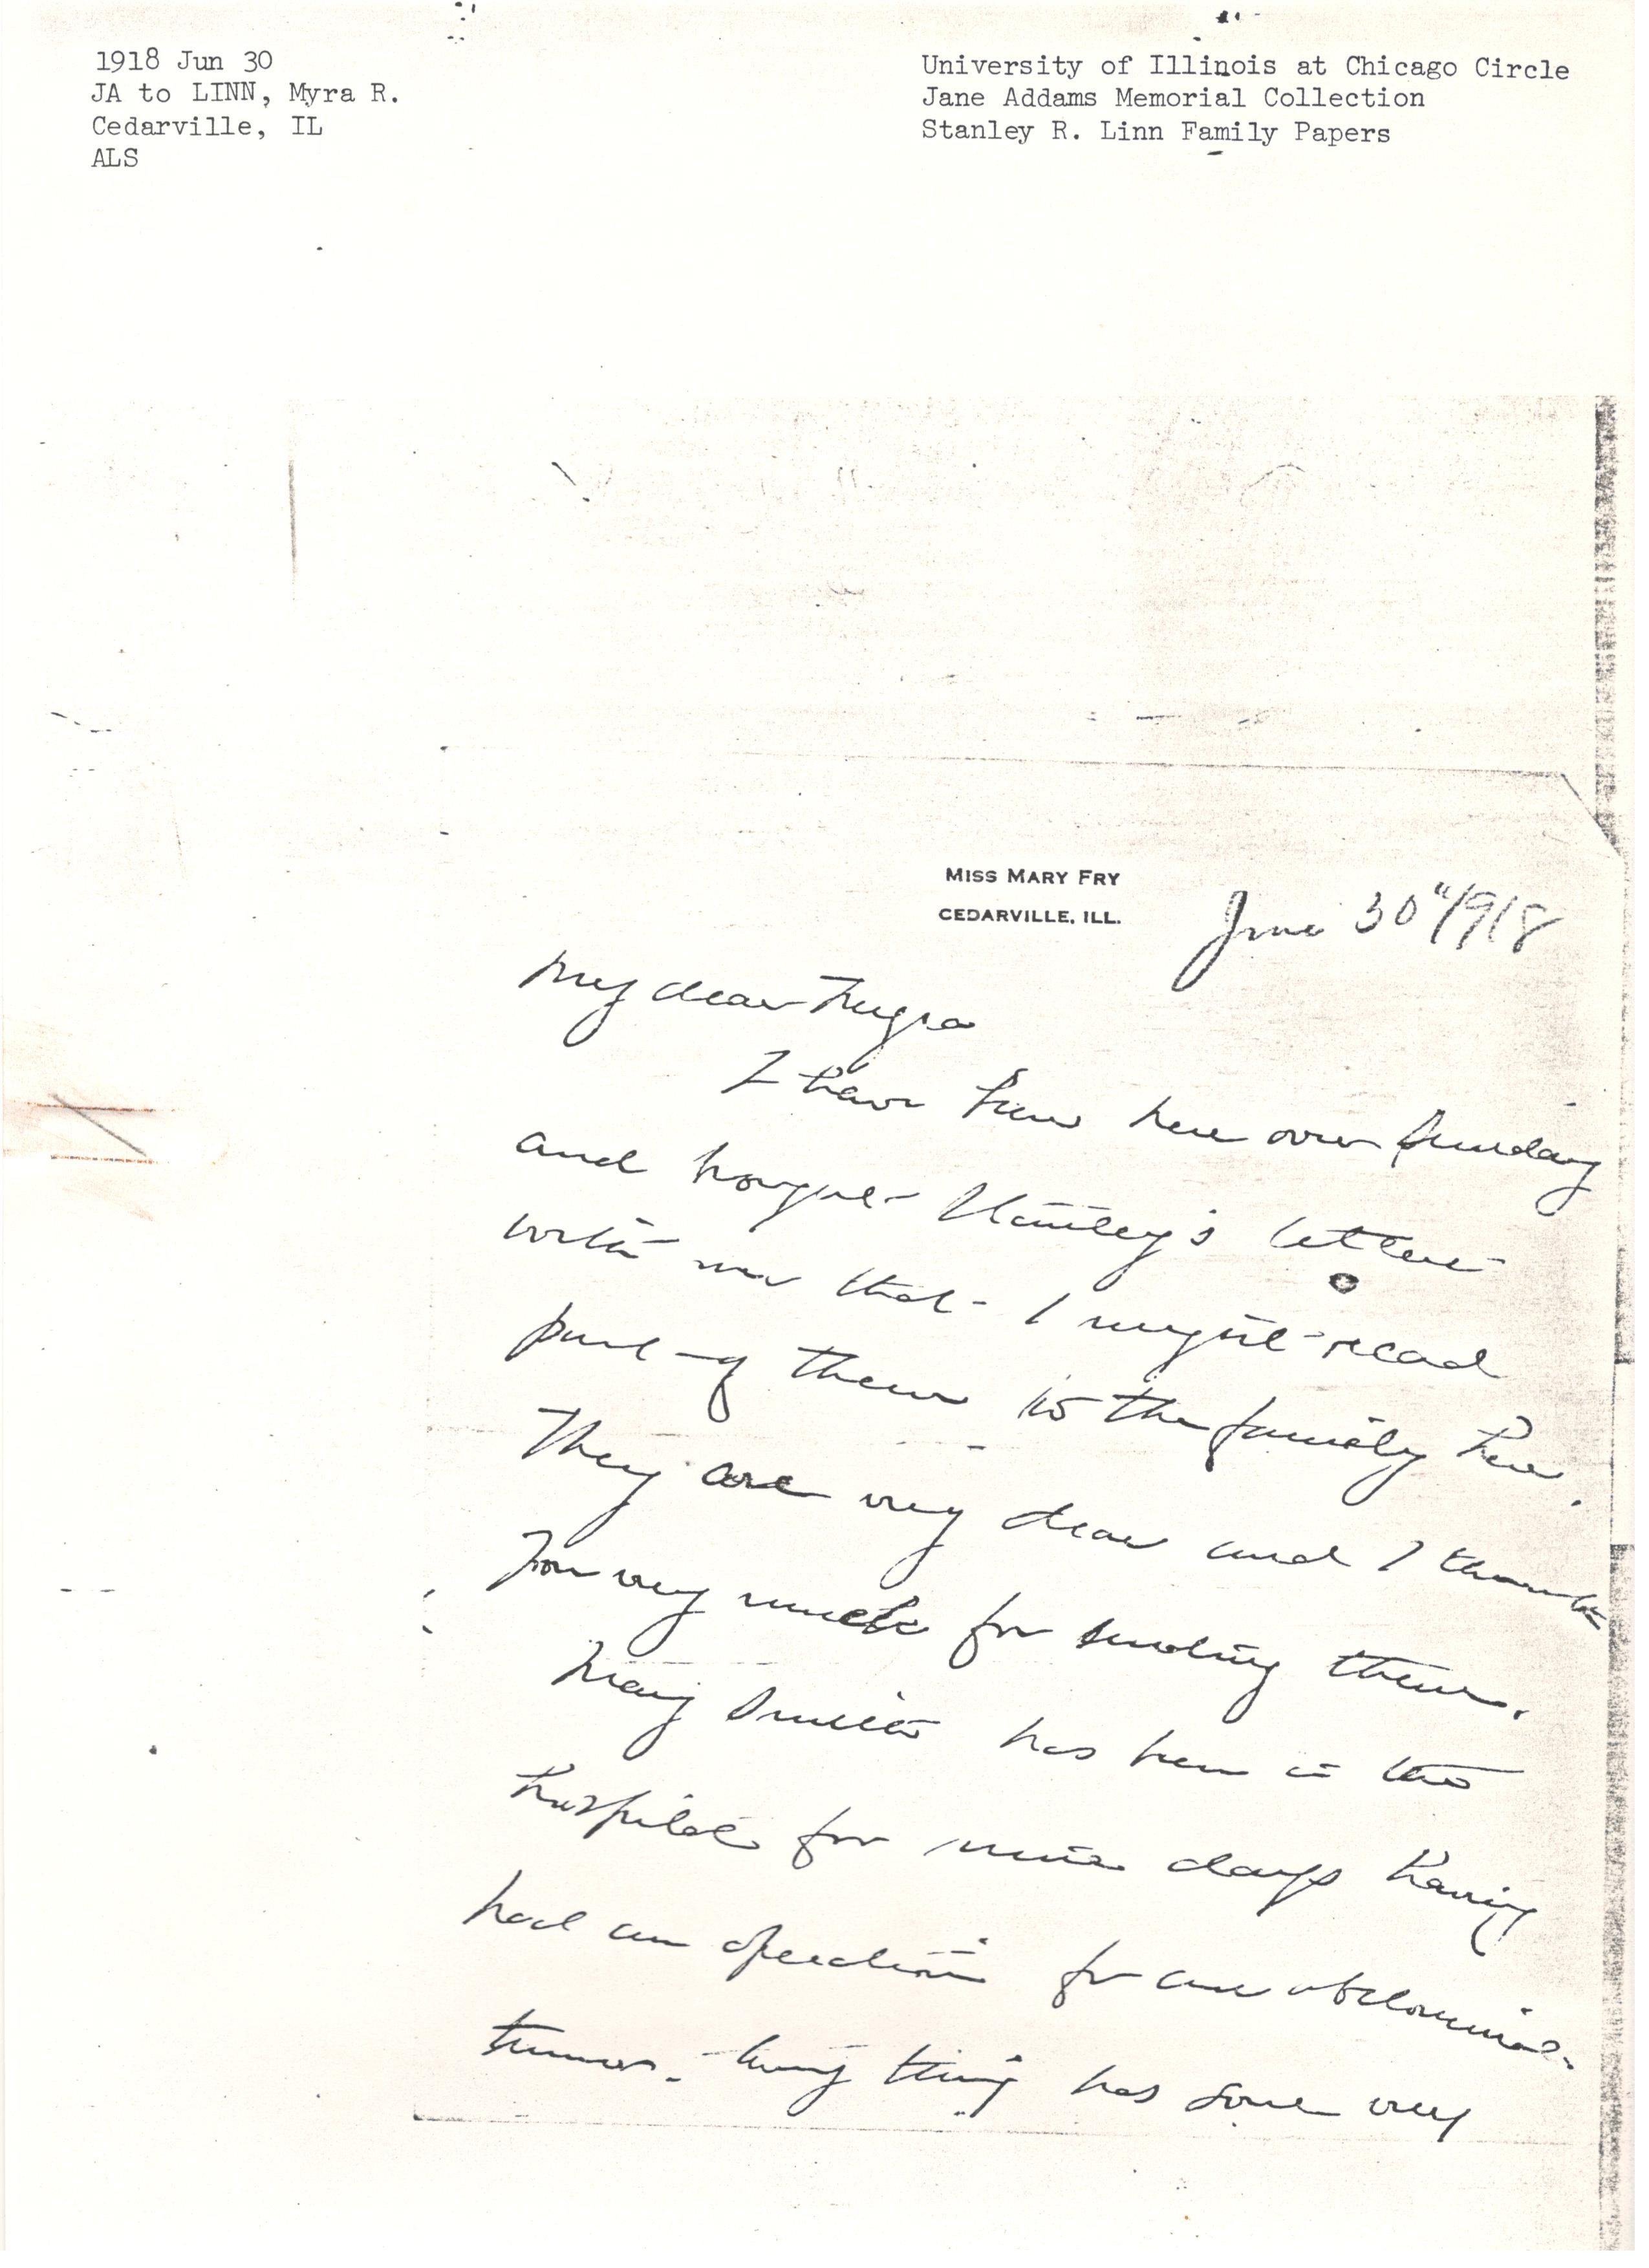 1918 Jun 30
JA to LINN, Myra R.
Cedarville, IL
ALS
University of Illinois at Chicago Circle
Jane Addams Memorial Collection
Stanley R. Linn Family Papers
MISS MARY FRY
CEDARVILLE, ILL.
June 30" 1918
My dear Myra
I have been here over Sunday
and brought Stanley's letters
with me that I might read
part of them to the family here.
They are very dear and I thank
you very much for sending them.
Mary Smith has been in the
hospital for nine days having
had an operation for an abdominal
tumor. Every thing has gone very